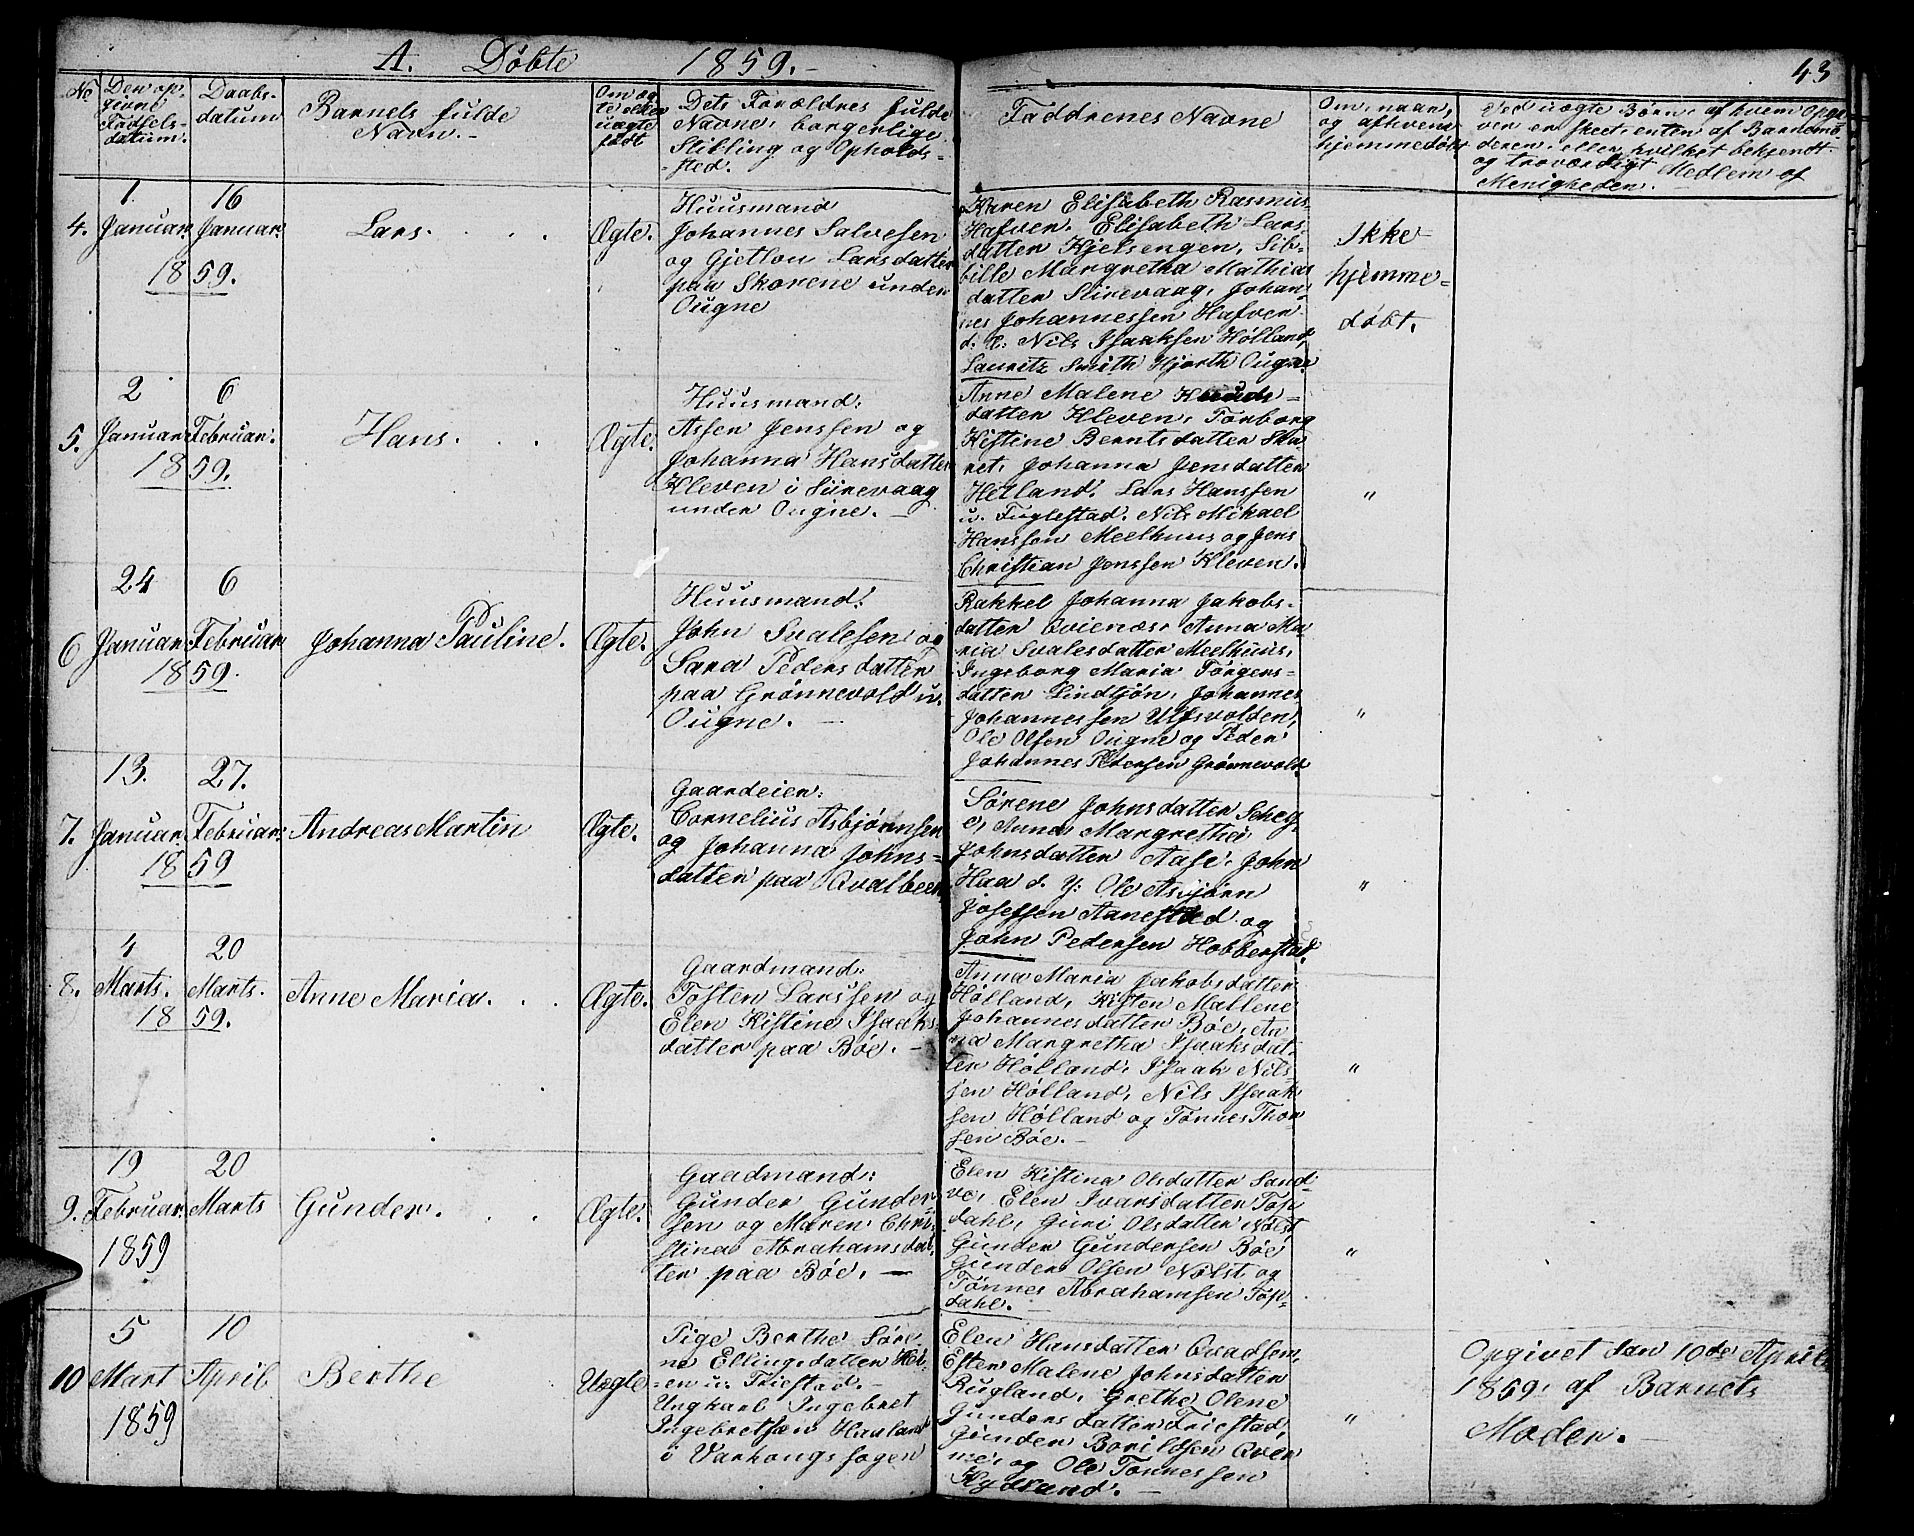 A. Döbte 1859.-
43
No
Den op-
givne
Fødsels-
datum.
Daabs-
datum
Barnets fulde
Navn.-
Om æg-
te eller
uægte
født
Dets Forældres fulde
Navne, borgerlige
Stilling og Opholds-
sted.
Faddrenes Navne
Om, naar,
og af hvem
hjemmedøbt
Ved uægte Børn, af hvem Opgi-
ven er skeet, enten af Barnemo-
deren, eller hvilket bekjendt
og troværdigt Medlem af
Menigheden.
4.
1
Januar
1859.
16
Januar.
Lars.
Ægte.
Huusmand
Johannes Salvesen
og Gjetlou Larsdatter
paa Skorene under
Ougne
Karen Elisabeth Rasmus
Hafven. Elisabeth Lars-
datter Kjelsengen, Sib-
bille Margretha Mathias
datter Sirevaag, Johan-
nes Johannessen Hafven
d. Æ: Nils Isaaksen Hölland,
Lauritz Smith Hjorth Ougne
Ikke
hjemme-
døbt.
5.
2
Januar
1859.
6
Februar.
Hans.
Ægte.
Huusmand:
Assen Jenssen og
Johanna Hansdatter
Kleven i Siirevaag
under Ougne.
Anne Malene
datter Kleven, Torborg
Kistine Berntsdatter Ska-
ret, Johanna Jensdatter
Hetland. Lars Hanssen
u. Fuglestad. Nils Mikael
Hanssen Meelhuus og Jens
Christian Jenssen Kleven.
"
6
24
Januar
1859.
6
Februar
Johanna Pauline.
Ægte.
Huusmand:
John Svalesen og
Sara Pedersdatter
paa Grönnevold u.
Ougne.
Rakkel Johanna Jakobs-
datter Qvienæs, Anna Ma-
ria Svalesdatter Meelhuus,
Ingeborg Maria Törgers-
datter Lindtjön, Johannes
Johannessen Ulfsvolden,
Ole Olsen Ougne og Peder
Johannes Pedersen Grönnevold.
"
7.
13.
Januar.
1859
27.
Februar.
Andreas Martin
Ægte.
Gaardeier:
Cornelius Asbjörnsen
og Johanna Johns-
datter paa Qvalbeen,
Sörene Johnsdatter
Anne Margrethe
Johnsdatter Aase, John
Haa d. y: Ole Asbjörn
Josefsen Aanestad og
John Pedersen Hobberstad.
"
8.
4
Marts.
1859.
20
Marts.
Anne Maria.
Ægte.
Gaardmand:
Tosten Larssen og
Elen Kistine Isaaks
datter paa Böe.
Anna Maria Jakobsdatter
Hölland, Kisten Mallene
Johannesdatter Böe, An
na Margretha Isaaksdat-
ter Hölland, Isaak Nils-
sen Hölland, Nils Isaak
sen Hölland og Tönnes Thor
sen Böe.
"
9.
19
Februar
1859
20
Marts
Gunder.
Ægte.
Gaadmand:
Gunder Gunder-
sen og Maren Chri-
stina Abrahamsdat-
ter paa Böe. —
Elen Kistina Olsdatter Sand-
ve, Elen Ivarsdatter Töp
dahl, Guri Olsdatter Nölst
Gunder Gundersen Böe
Gunder Olsen Nölst og
Tönnes Abrahamsen Töp-
dahl.
"
10
5
Mart
1859
10
April
Berthe
Uægte
Pige Berthe Söre
ne Ellingsdatter
u. Friestad.
Ungkarl Ingebret
Ingebretsen Hauland
i Varhougs sogen
Elen Hansdatter Qvadsem,
Ester Malene Johnsdatter
Rugland, Grethe Olene
Gundersdatter Friestad,
Gunder Borildsen Qver
me, og Ole Tönnessen
Rydland.
"
Opgivet den 10de April
1859, af Barnets
Moder.